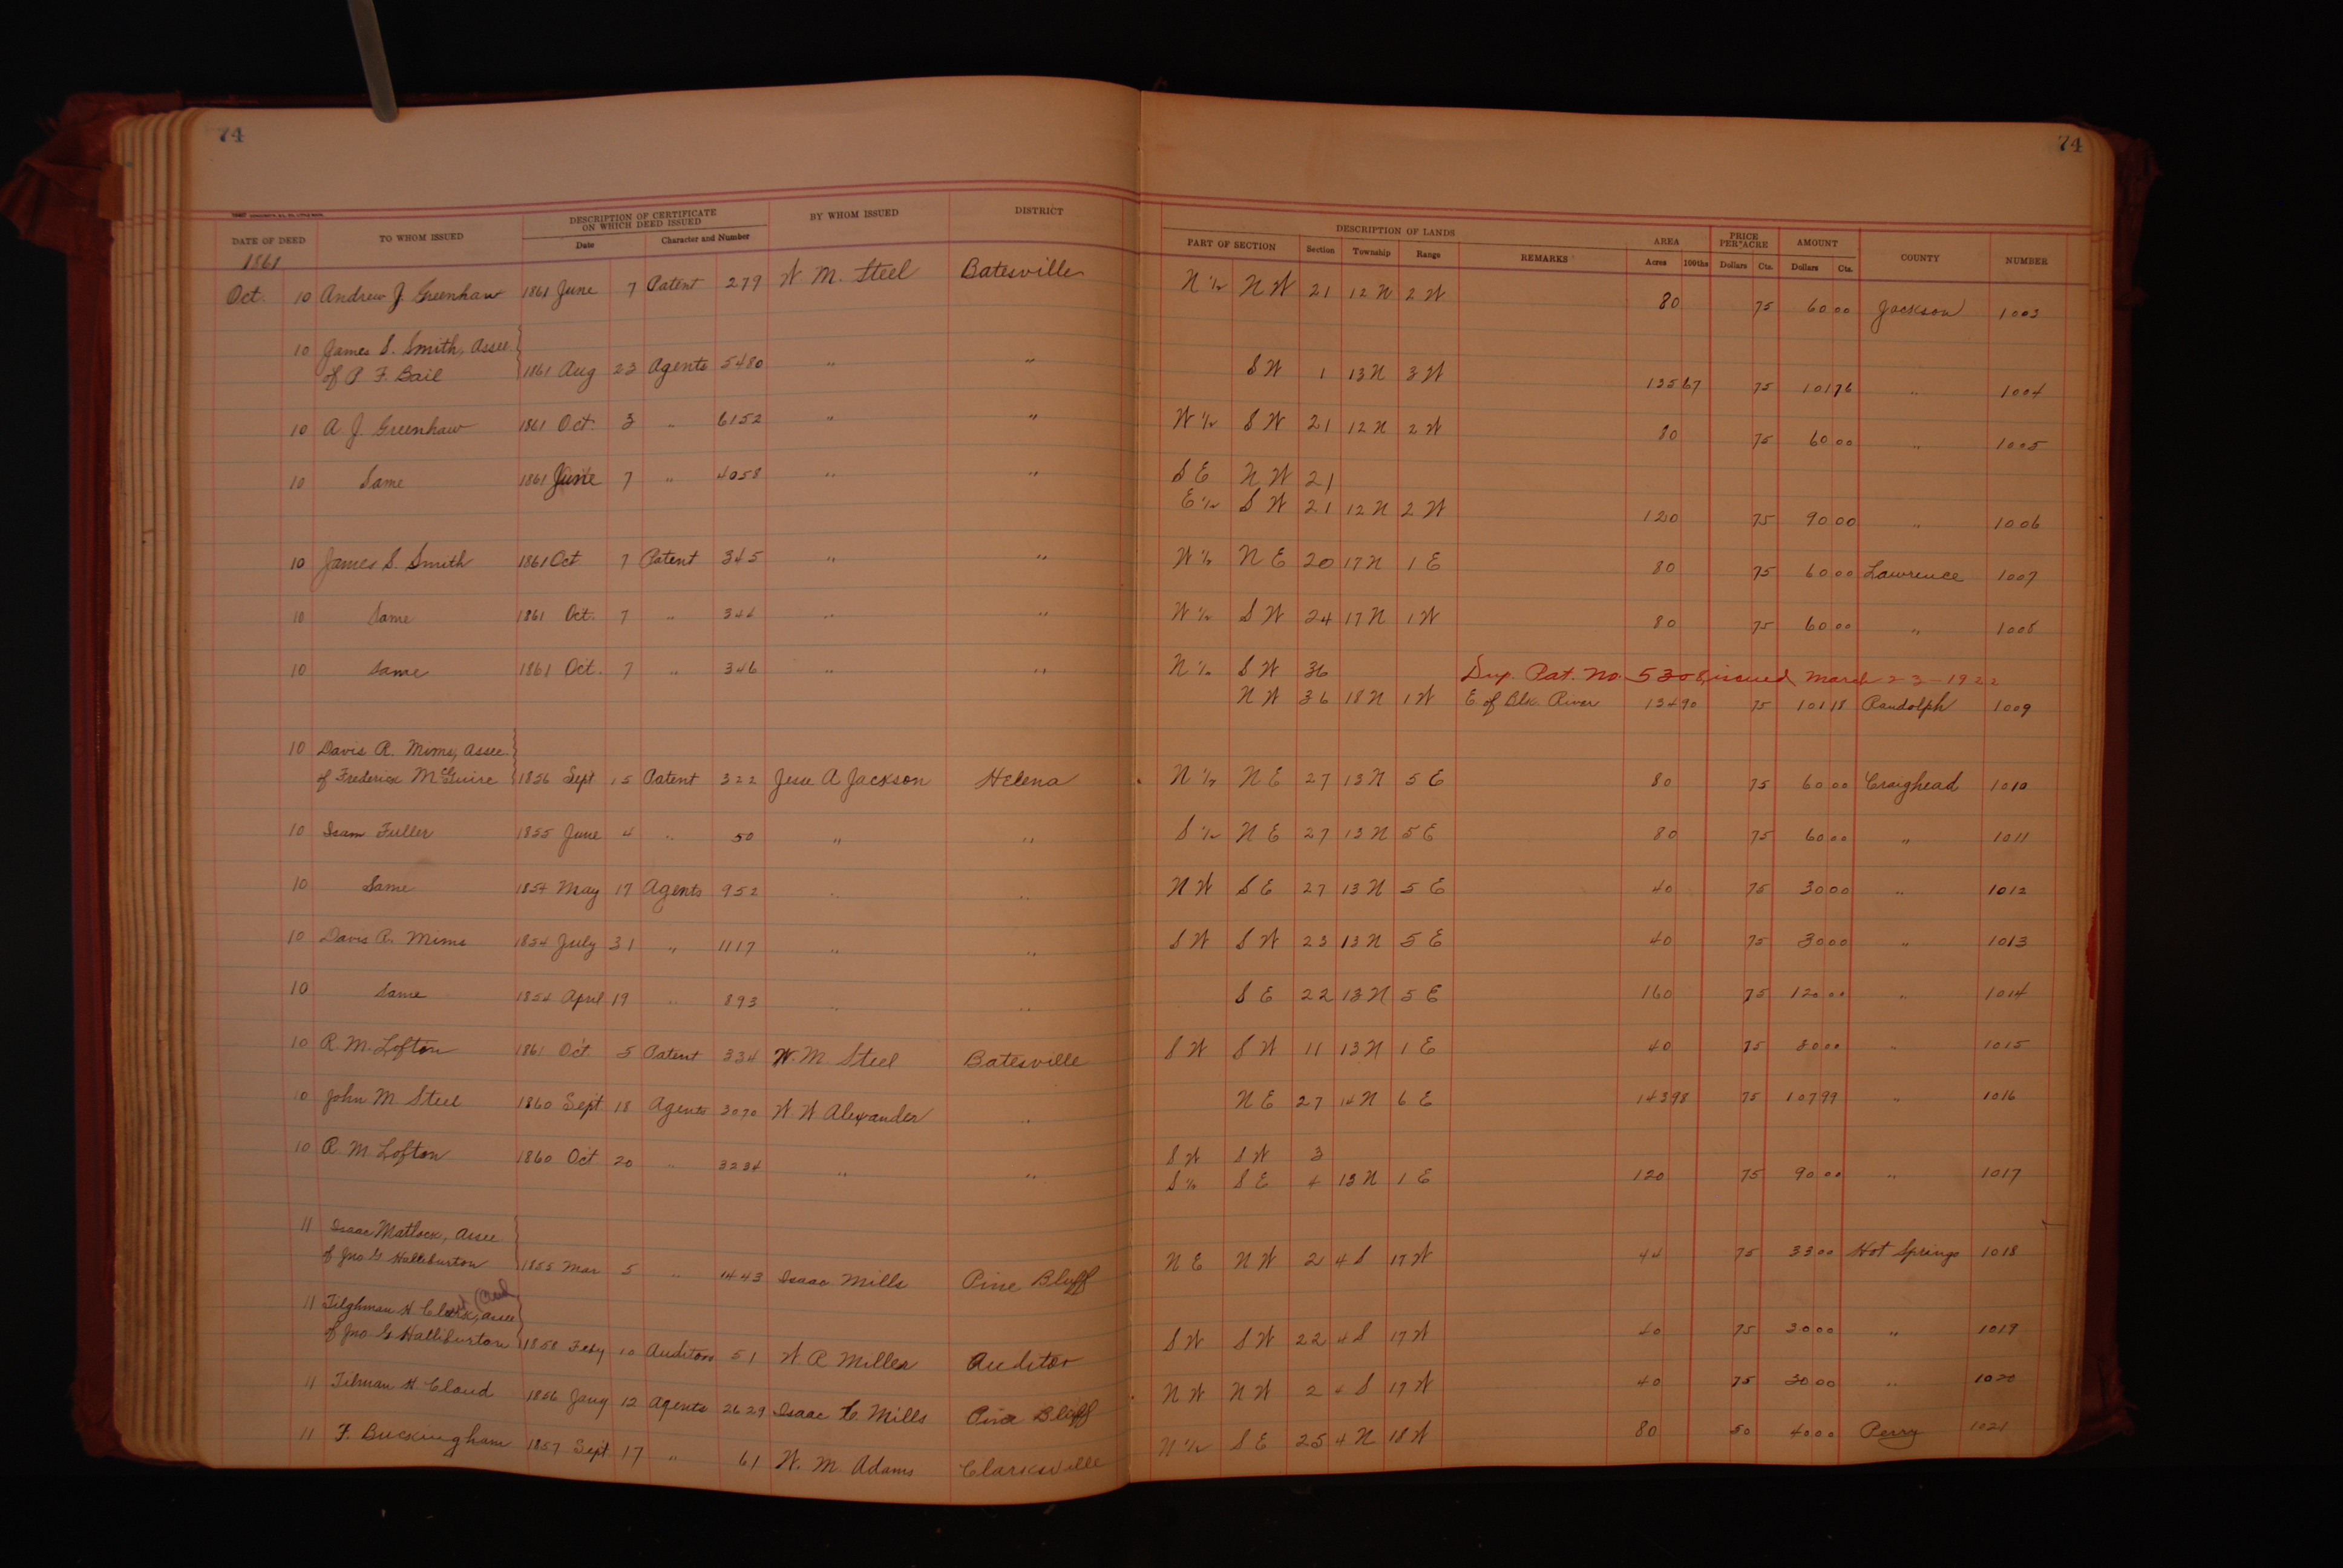 74
74
DATE OF DEED TO WHOM ISSUED DESCRIPTION OF CERTIFICATE ON WHICH DEED ISSUED Date Character and Number BY WHOM ISSUED DISTRICT DESCRIPTION OF LANDS PART OF SECTION Section Township Range REMARKS AREA Acres 100ths PRICE PER ACRE Dollars Cts. AMOUNT Dollars Cts. COUNTY NUMBER
1861
Oct. 10 Andrew J Greenhaw 1861 June 7 Patent 279 W M. Steel Batesville N ½ N W 21 12 N 2 W 80 75 60 00 Jackson 1003
10 James S. Smith, Assee
of P F. Bail 1861 Aug 23 Agents 5480 " " S W 1 13 N 3 W 135 67 75 101 76 " 1004
10 A J Greenhaw 1861 Oct. 3 " 6152 " " W ½ S W 21 12 N 2 W 80 75 60 00 " 1005
10 Same 1861 June 7 " 4058 " " S E N W 21
E ½ S W 21 12 N 2 W 120 75 90 00 " 1006
10 James S. Smith 1861 Oct 7 Patent 345 " " W ½ N E 20 17 N 1 E 80 75 60 00 Lawrence 1007
10 Same 1861 Oct. 7 " 344 " " W ½ S W 24 17 N 1 W 80 75 60 00 " 1008
10 Same 1861 Oct. 7 " 346 " " N ½ S W 36 Dup. Pat. No. 5308 issued March 2-3-1922
N W 36 18 N 1 W E of Blk. River 134 90 75 101 18 Randolph 1009
10 Davis R. Mims, Assee
of Frederick McGuire 1856 Sept 15 Patent 322 Jesse A Jackson Helena N ½ N E 27 13 N 5 E 80 75 60 00 Craighead 1010
10 Isam Fuller 1855 June 4 " 50 " " S ½ N E 27 13 N 5 E 80 75 60 00 " 1011
10 Same 1854 May 17 Agents 952 " " N W S E 27 13 N 5 E 40 75 30 00 " 1012
10 Davis R. Mims 1854 July 31 " 1117 " " S W S W 23 13 N 5 E 40 75 30 00 " 1013
10 Same 1854 April 19 " 893 " " S E 22 13 N 5 E 160 75 120 00 " 1014
10 R. M. Lofton 1861 Oct 5 Patent 334 W. M. Steel Batesville S W S W 11 13 N 1 E 40 75 30 00 " 1015
10 John M Steel 1860 Sept 18 Agents 3070 W W Alexander " N E 27 14 N 6 E 143 98 75 107 99 " 1016
10 R. M Lofton 1860 Oct 20 " 3234 " " S W S W 3
S ½ S E 4 13 N 1 E 120 75 90 00 " 1017
11 Isaac Matlock, Assee
of Jno G Halliburton 1855 Mar 5 " 1443 Isaac Mills Pine Bluff N E N W 2 4 S 17 W 44 75 33 00 Hot Springs 1018
11 Tilghman H Clark, Assee
of Jno G Halliburton 1858 Feby 10 Auditors 51 W R Miller Auditor S W S W 22 4 S 17 W 40 75 30 00 " 1019
11 Tilman H Cloud 1856 Jany 12 Agents 2629 Isaac C. Mills Pine Bluff N W N W 2 4 S 17 W 40 75 30 00 " 1020
11 F. Buckingham 1857 Sept 17 " 61 W. M. Adams Clarksville N ½ S E 25 4 N 18 W 80 50 40 00 Perry 1021